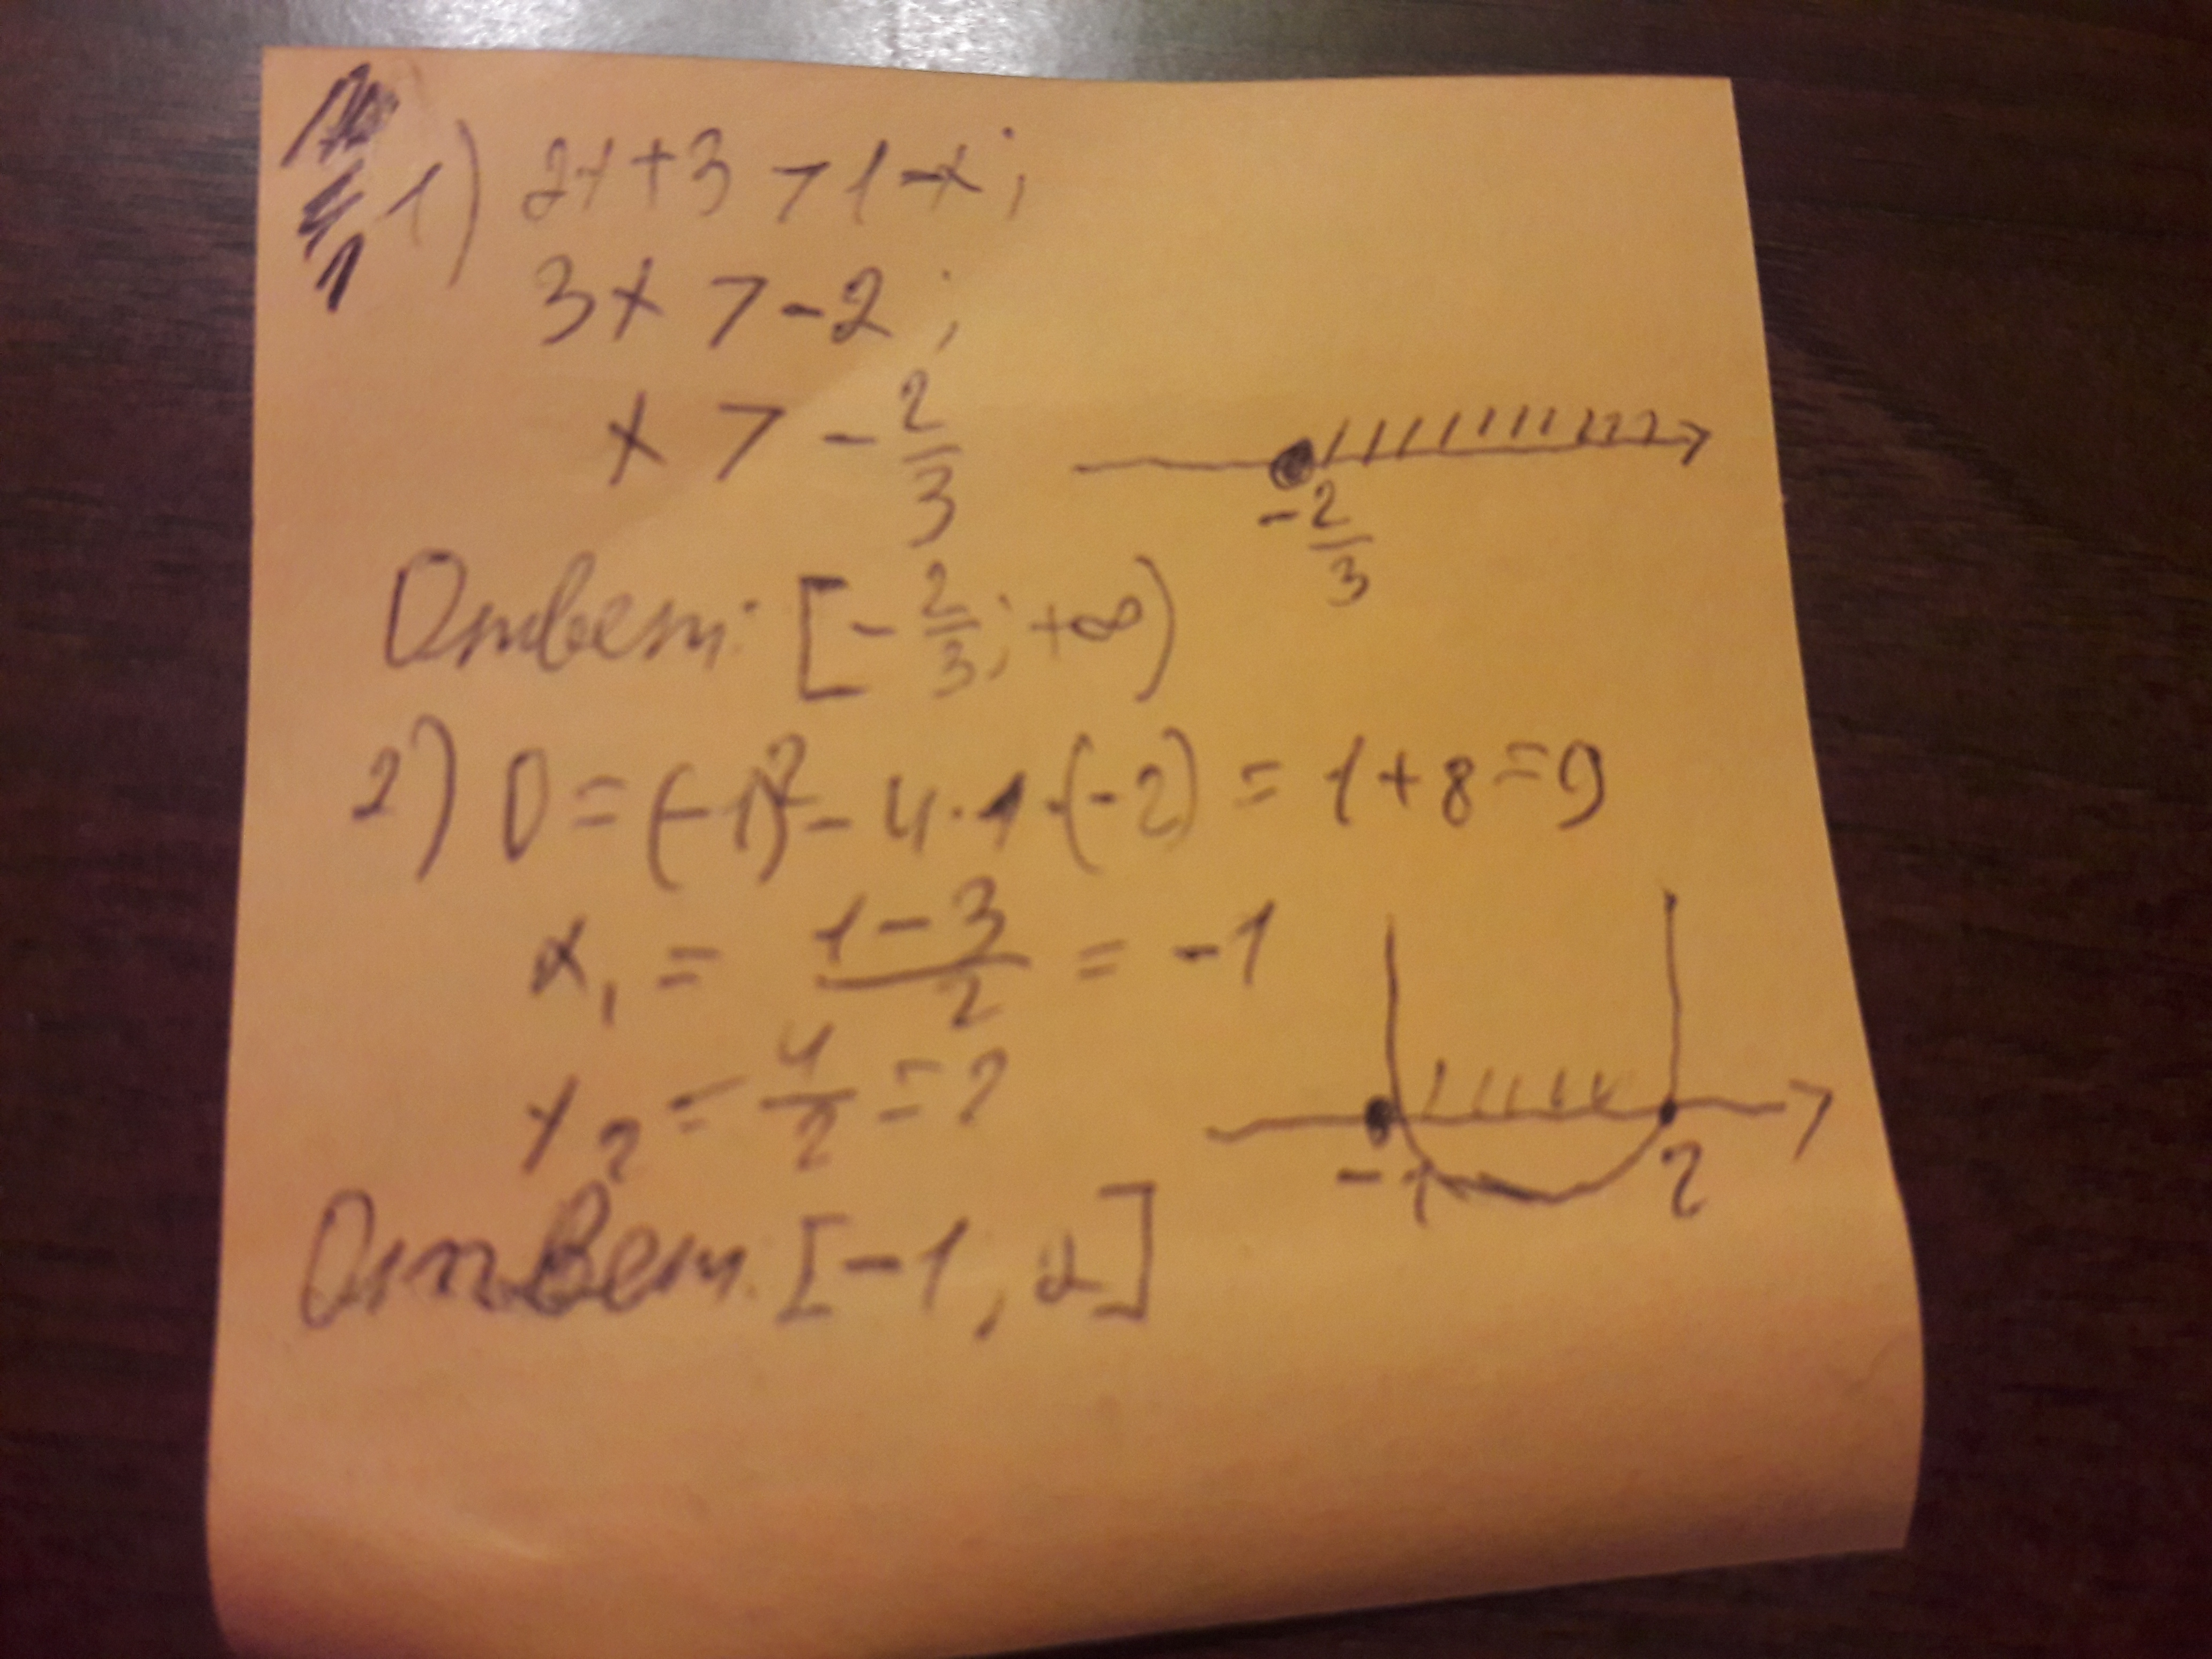 1) 2x+3 > 1-x;
3x > -2;
x > -2/3
-2/3
Ответ: [-2/3; +∞)
2) D = (-1)² - 4·1·(-2) = 1+8=9
x₁ = (1-3)/2 = -1
x₂ = 4/2 = 2
-1 2
Ответ: [-1, 2]